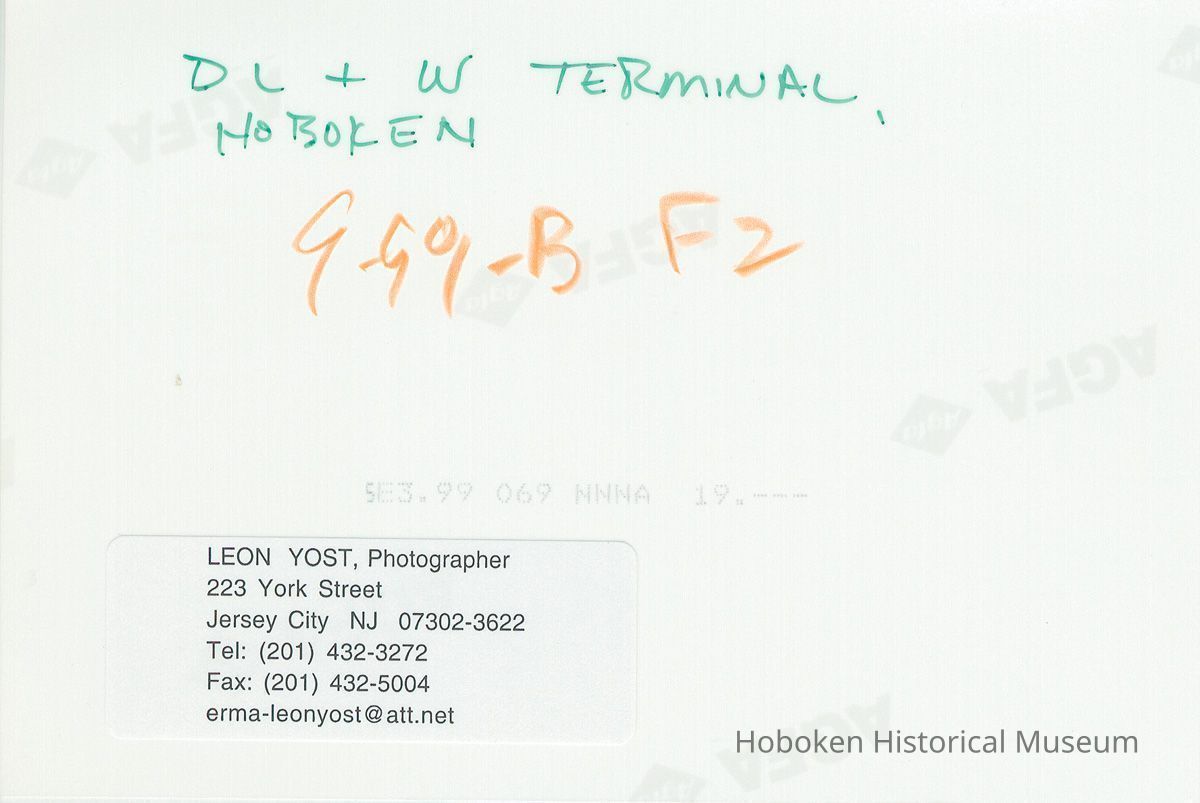 DL + W TERMINAL,
HOBOKEN
9-99-B F2
AGFA
Agfa
AGFA
Agfa
AGFA
Agfa
SE3.99 069 NNNA 19.---
LEON YOST, Photographer
223 York Street
Jersey City NJ 07302-3622
Tel: (201) 432-3272
Fax: (201) 432-5004
erma-leonyost@att.net
Hoboken Historical Museum
AGFA
Agfa